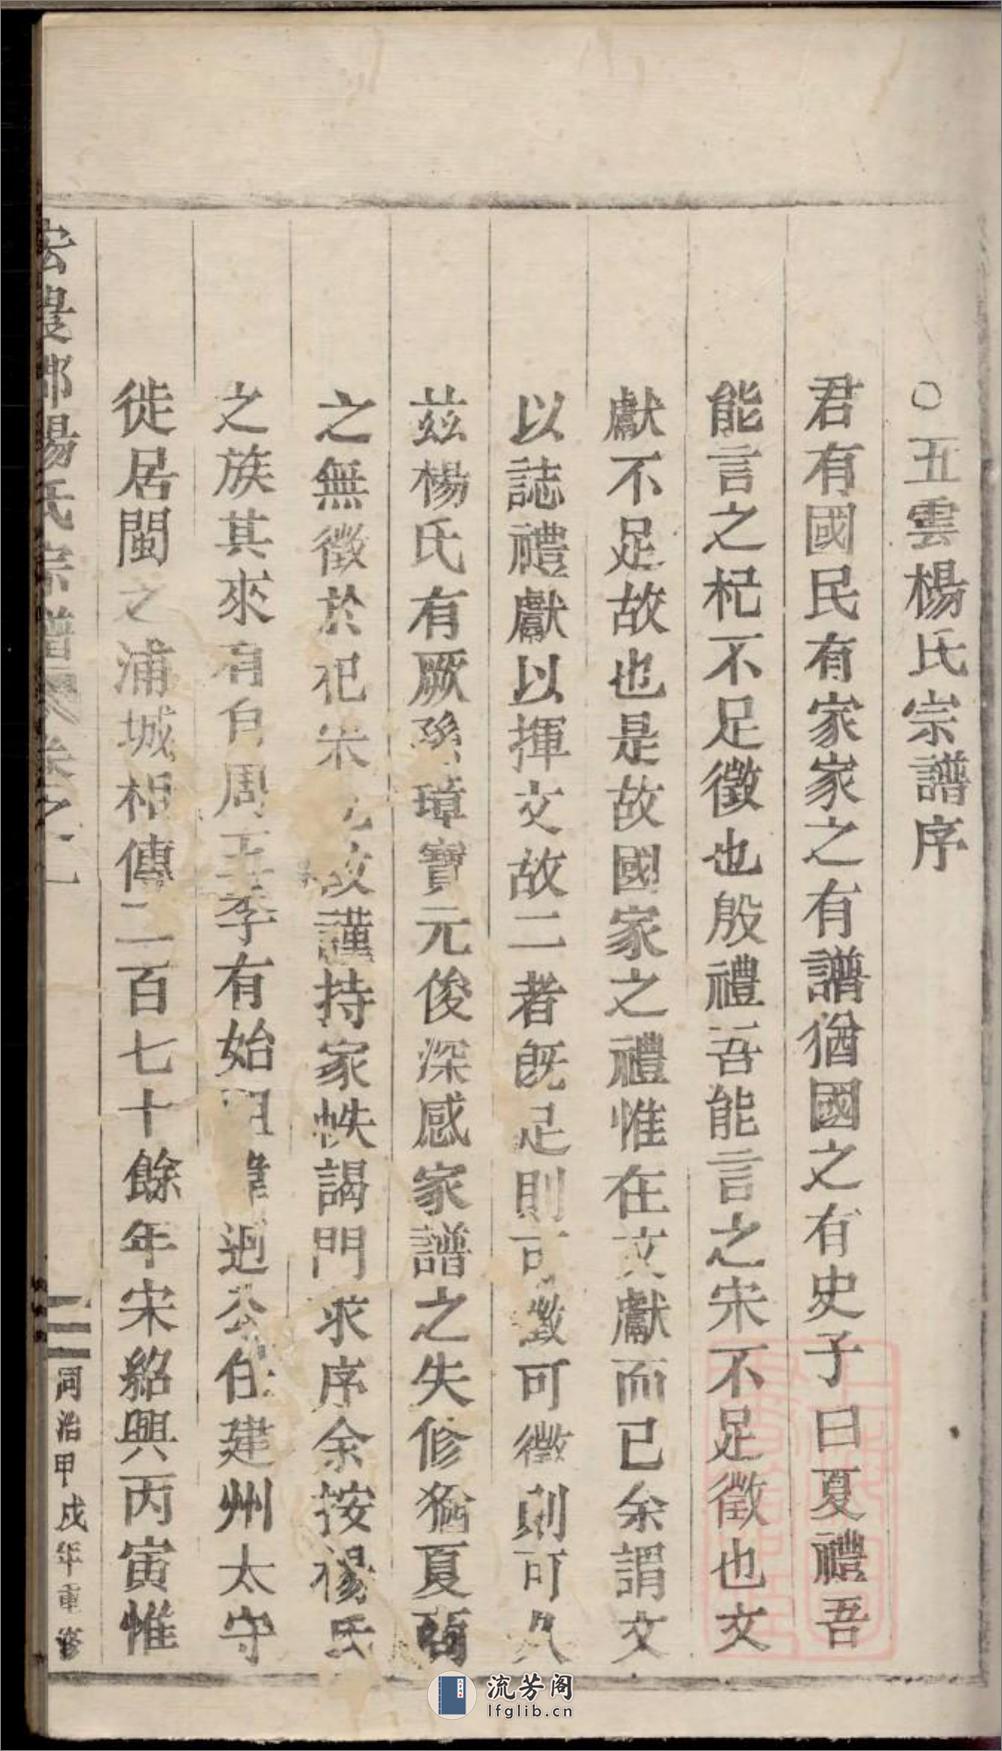 ○五雲楊氏宗譜序
君有國民有家家之有譜猶國之有史子曰夏禮吾
能言之杞不足徵也殷禮吾能言之宋不足徵也文
獻不足故也是故國家之禮惟在文獻而已余謂文
以誌禮獻以揮文故二者既足則可徵可徵則可久
茲楊氏有厥孫璋寶元俊深感家譜之失修猶夏商
之無徵於杞宋故謹持家帙謁門求序余按楊氏
之族其來有自周王季有始祖迥公任建州太守
徙居閩之浦城相傳二百七十餘年宋紹興丙寅惟
宏農郡楊氏宗譜卷之一
同治甲戌年重修
流芳阁
lfglib.cn